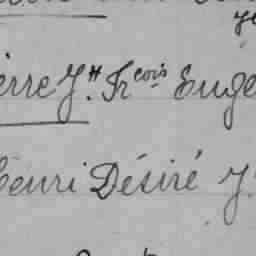 erre Jʰ. Frçois Euge
Henri Désiré J